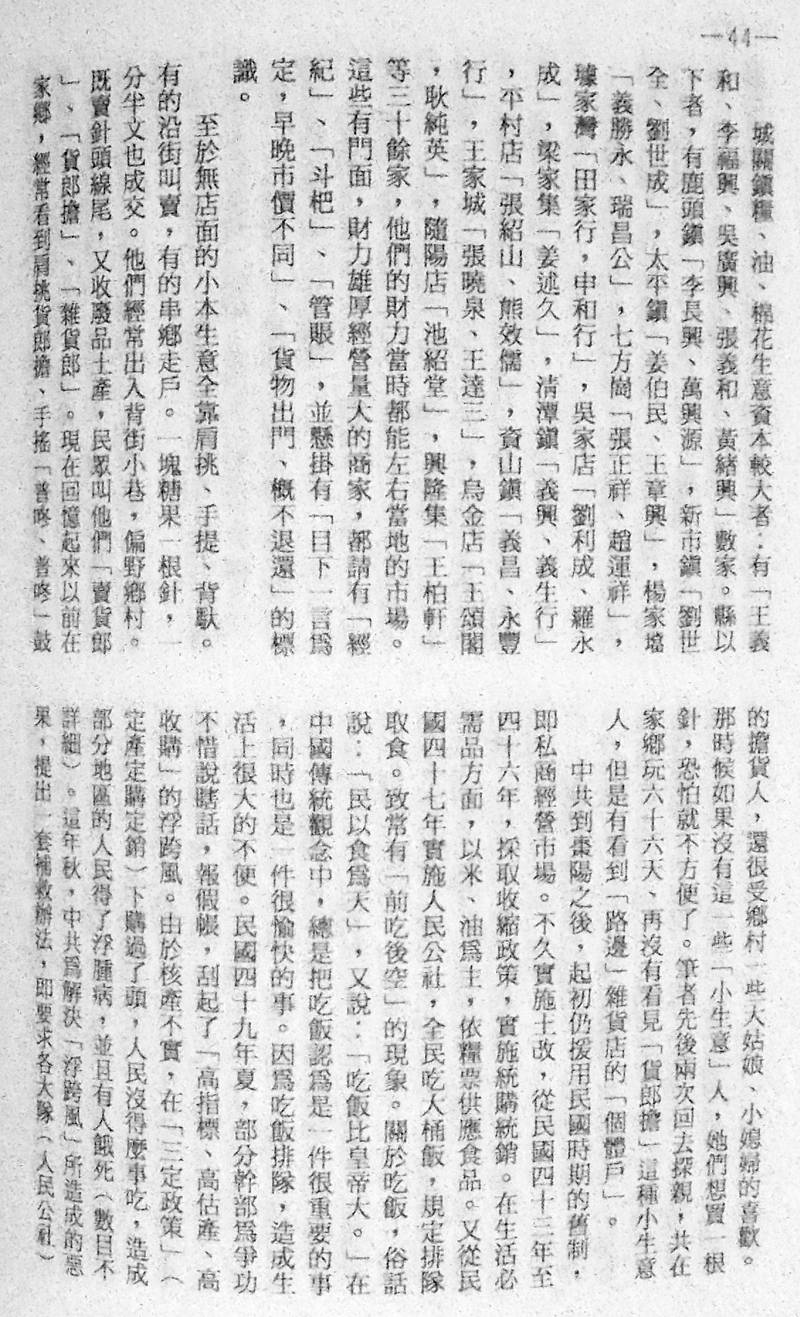 —44—
城關鎮糧、油、棉花生意資本較大者：有「王義
和、李福興、吳廣興、張義和、黃緒興」數家。縣以
下者，有鹿頭鎮「李長興、萬興源」，新市鎮「劉世
全、劉世成」，太平鎮「姜伯民、王章興」，楊家壋
「義勝永、瑞昌公」，七方崗「張正祥、趙運祥」，
璩家灣「田家行，申和行」，吳家店「劉利成、羅永
成」，梁家集「姜述久」，清潭鎮「義興、義生行」
，平村店「張紹山、熊效儒」，資山鎮「義昌、永豐
行」，王家城「張曉泉、王達三」，烏金店「王頌閣
，耿純英」，隨陽店「池紹堂」，興隆集「王柏軒」
等三十餘家，他們的財力當時都能左右當地的市場。
這些有門面，財力雄厚經營量大的商家，都請有「經
紀」、「斗杷」、「管賬」，並懸掛有「日下一言爲
定，早晚市價不同」、「貨物出門、概不退還」的標
識。
至於無店面的小本生意全靠肩挑、手提、背馱。
有的沿街叫賣，有的串鄉走戶。一塊糖果一根針，一
分半文也成交。他們經常出入背街小巷，偏野鄉村。
既賣針頭線尾，又收廢品土產，民眾叫他們「賣貨郎
」、「貨郎擔」、「雜貨郎」。現在回憶起來以前在
家鄉，經常看到肩挑貨郎擔、手搖「普咚、普咚」鼓
的擔貨人，還很受鄉村一些大姑娘、小媳婦的喜歡。
那時候如果沒有這一些「小生意」人，她們想買一根
針，恐怕就不方便了。筆者先後兩次回去探親，共在
家鄉玩六十六天、再沒有看見「貨郎擔」這種小生意
人，但是有看到「路邊」雜貨店的「個體戶」。
中共到棗陽之後，起初仍援用民國時期的舊制，
即私商經營市場。不久實施土改，從民國四十三年至
四十六年，採取收縮政策，實施統購統銷。在生活必
需品方面，以米、油爲主，依糧票供應食品。又從民
國四十七年實施人民公社，全民吃大桶飯，規定排隊
取食。致常有「前吃後空」的現象。關於吃飯，俗話
說：「民以食爲天」，又說：「吃飯比皇帝大。」在
中國傳統觀念中，總是把吃飯認爲是一件很重要的事
，同時也是一件很愉快的事。因爲吃飯排隊，造成生
活上很大的不便。民國四十九年夏，部分幹部爲爭功
不惜說瞎話，報假帳，刮起了「高指標、高估產、高
收購」的浮跨風。由於核產不實，在「三定政策」（
定產定購定銷）下購過了頭，人民沒得麼事吃，造成
部分地區的人民得了浮腫病，並且有人餓死（數目不
詳細）。這年秋，中共爲解決「浮跨風」所造成的惡
果，提出一套補救辦法，即要求各大隊（人民公社）